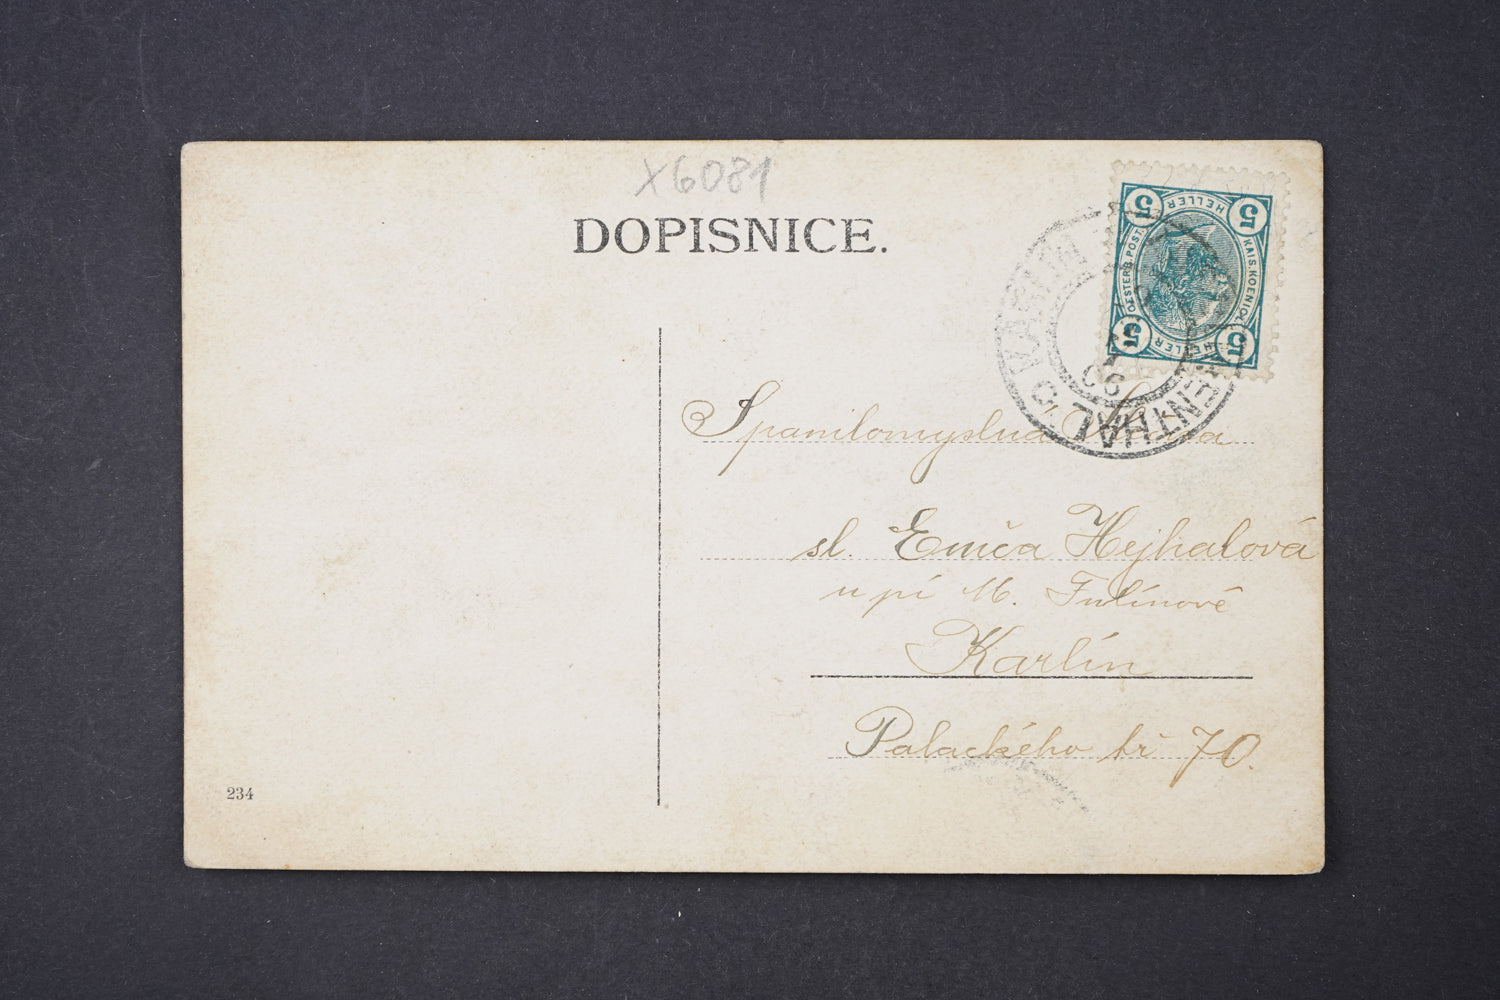 X6081
DOPISNICE.
5 HELLER 5
KAIS. KOENIGL.
OESTERR. POST.
5 HELLER 5
KAROLINENTHAL
06
Spanilomyslná
sl. Emča Hejhalová
u pí M. Fulínové
Karlín
Palackého tř 70.
234